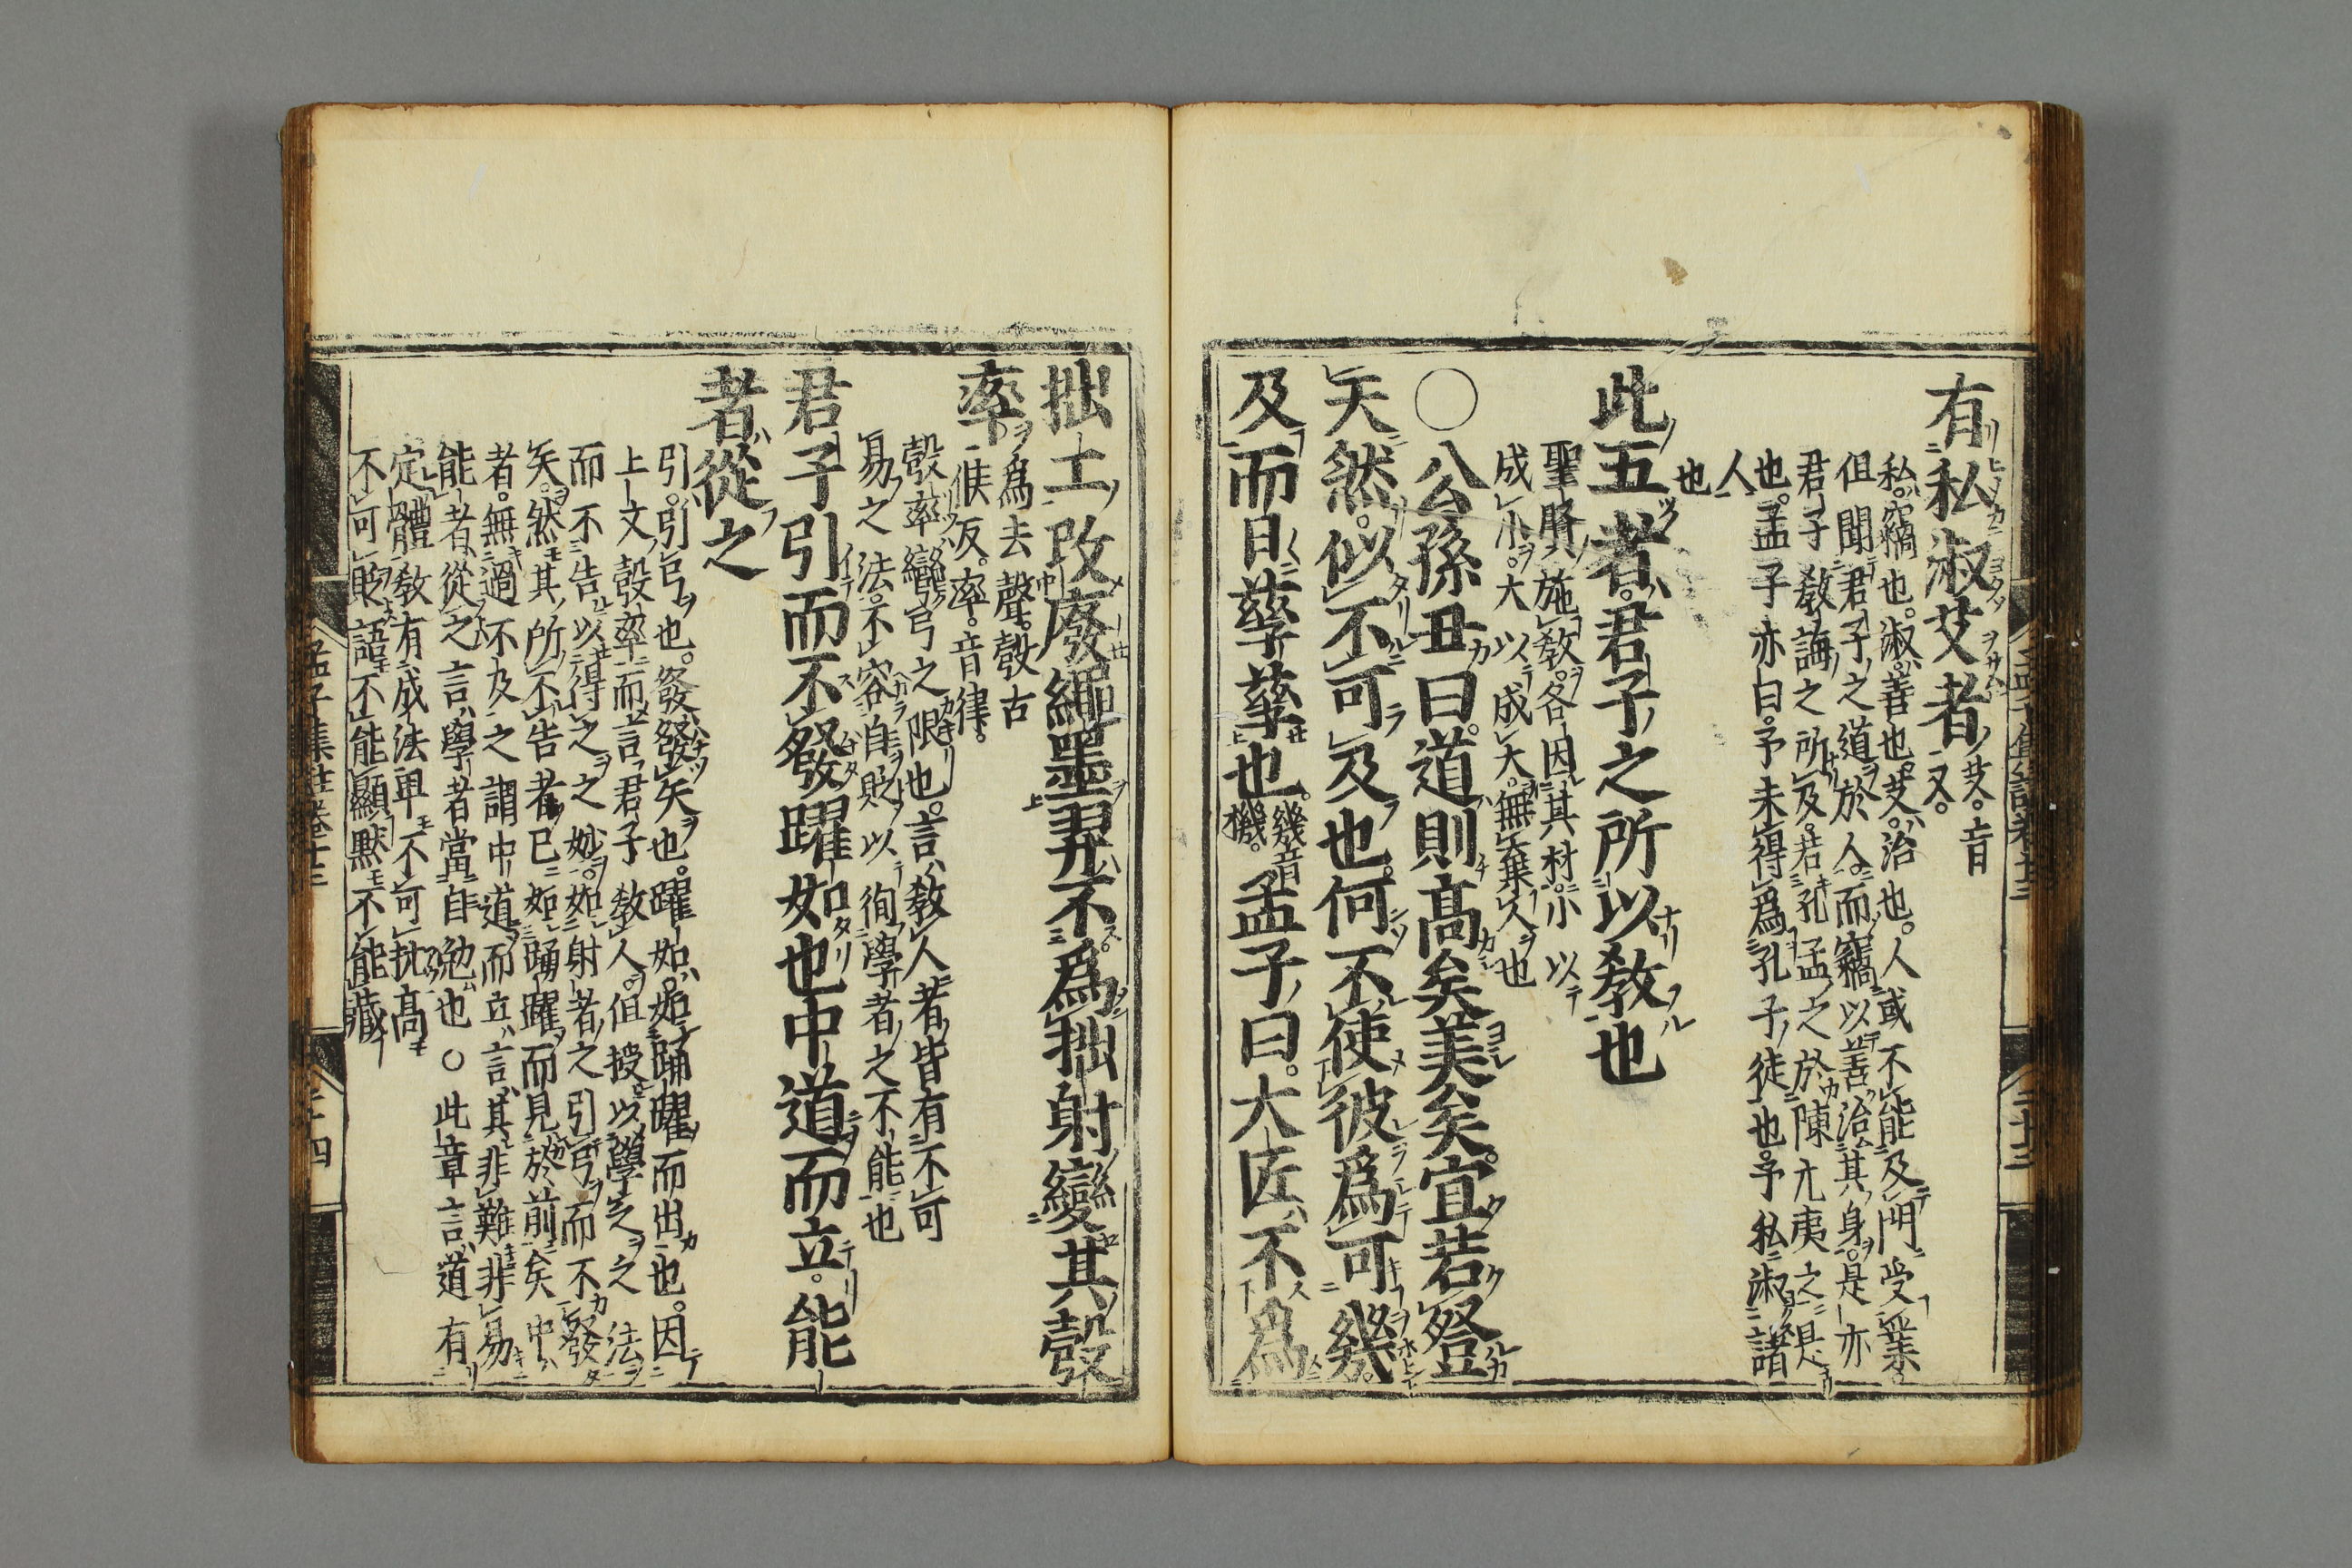 有私淑艾者艾音
乂
私竊也淑善也艾治也人或不能及門受業
但聞君子之道於人而竊以善治其身是亦
君子教誨之所及若孔孟之於陳亢夷之是
也孟子亦曰予未得爲孔子徒也予私淑諸
人也
此五者君子之所以教也
聖賢施教各因其材小以
成小大以成大無棄人也
○公孫丑曰道則高矣美矣宜若登
天然似不可及也何不使彼爲可幾
及而日孳孳也幾音
機孟子曰大匠不爲
拙工改廢繩墨羿不爲拙射變其彀
率爲去聲彀古
候反率音律
彀率彎弓之限也言教人者皆有不可
易之法不容自貶以徇學者之不能也
君子引而不發躍如也中道而立能
者從之
引引弓也發發矢也躍如如踊躍而出也因
上文彀率而言君子教人但授以學之之法
而不告以得之之妙如射者之引弓而不發
矢然其所不告者已如踊躍而見於前矣中
者無過不及之謂中道而立言其非難非易
能者從之言學者當自勉也○此章言道有
定體教有成法卑不可抗高
不可貶語不能顯默不能藏
孟子集註卷十三